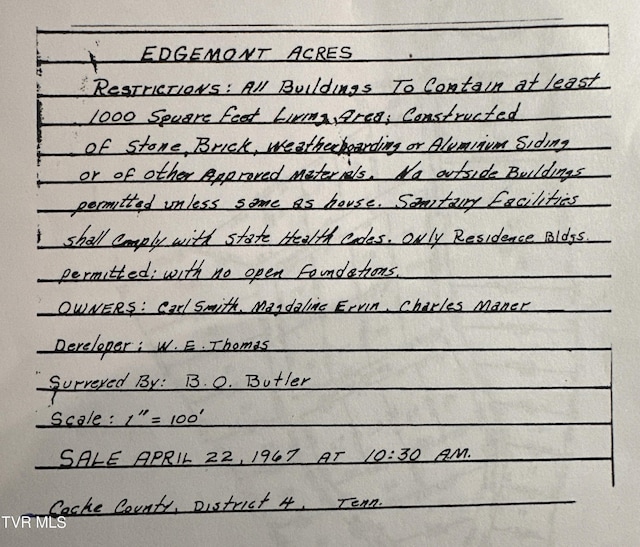 EDGEMONT ACRES
RESTRICTIONS: All Buildings To Contain at least
1000 Square feet Living Area; Constructed
of Stone, Brick, Weatherboarding or Aluminum Siding
or of other Approved Materials. No outside Buildings
permitted unless same as house. Sanitary facilities
shall Comply with State Health Codes. Only Residence Bldgs.
permitted; with no open foundations.
OWNERS: Carl Smith, Magdaline Ervin, Charles Maner
Developer: W. E. Thomas
Surveyed By: B. O. Butler
Scale: 1" = 100'
SALE APRIL 22, 1967 AT 10:30 A.M.
Cocke County, District 4, Tenn.
TVR MLS